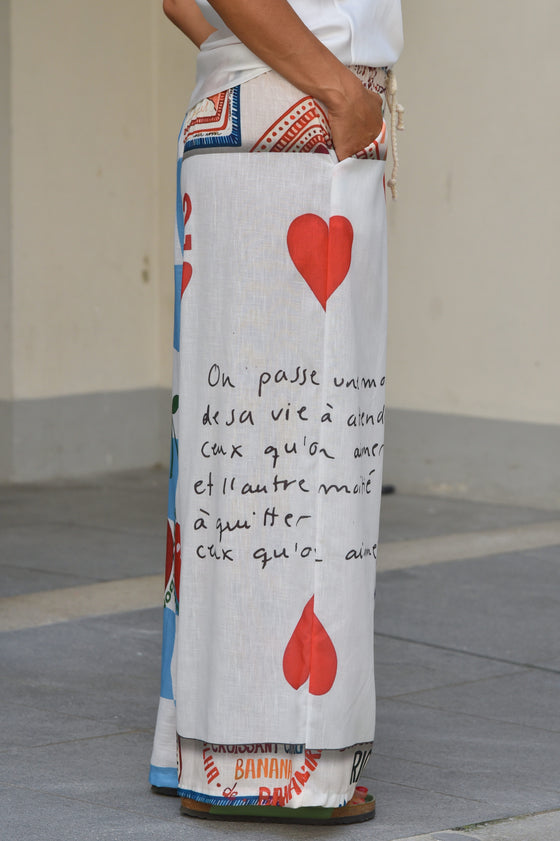 2
On passe une mo
de sa vie à atend
ceux qu'on aime
et l'autre moitié
à quitter
ceux qu'on aime
CROISSANT
BANANA
de
RIO